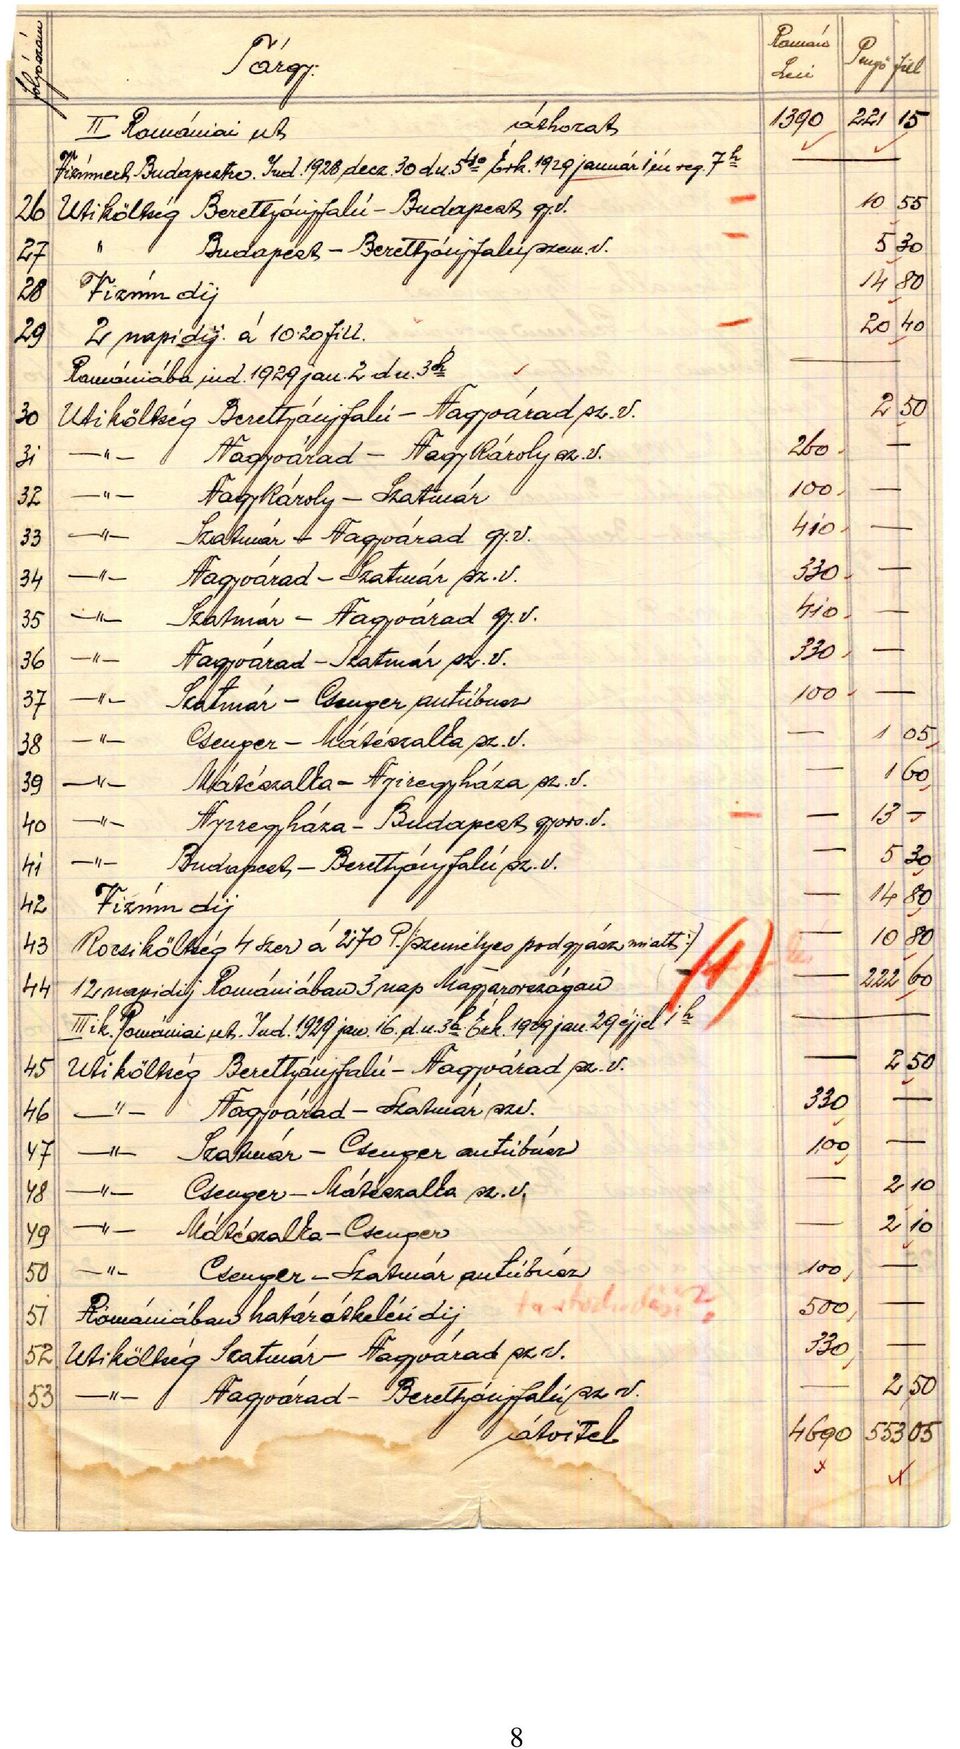 folyószám Tárgy: Román Lei Pengő fill
II Romániai út áthozat 1390 221 15
Vizumért Budapestre. Ind. 1928 decz. 30 du. 5 Érk. 1929 január 1 én reg. 7 h —
26 Utiköltség Berettyóújfalú – Budapest gy.v. 10 55
27 " Budapest – Berettyóújfalú szem.v. 5 30
28 Vizum dij 14 80
29 2 napidij á 10.20 fill. 20 40
Romániába ind. 1929 jan. 2 du. 3 h —
30 Utiköltség Berettyóújfalú – Nagyvárad sz.v. 2 50
31 —"— Nagyvárad – Nagykároly sz.v. 260 —
32 —"— Nagykároly – Szatmár 100 —
33 —"— Szatmár – Nagyvárad gy.v. 410 —
34 —"— Nagyvárad – Szatmár sz.v. 330 —
35 —"— Szatmár – Nagyvárad gy.v. 410 —
36 —"— Nagyvárad – Szatmár sz.v. 330 —
37 —"— Szatmár – Csenger autúbusz 100 —
38 —"— Csenger – Mátészalka sz.v. — 1 05
39 —"— Mátészalka – Nyiregyháza sz.v. — 1 60
40 —"— Nyiregyháza – Budapest gyors.v. — 13 —
41 —"— Budapest – Berettyóújfalú sz.v. — 5 30
42 Vizum dij — 14 80
43 Kocsiköltség 4 szer á 2.70 P. /:személyes podgyász miatt:/ — 10 80
(1)
44 12 napidij Romániában 3 nap Magyarországon — 222 60
III ik. Romániai út. Ind. 1929 jan. 16. d.u. 3 h Érk. 1929 jan. 29 éjjel 1 h
45 Utiköltség Berettyóújfalú – Nagyvárad sz.v. — 2 50
46 —"— Nagyvárad – Szatmár szv. 330 —
47 —"— Szatmár – Csenger autúbúsz 100 —
48 —"— Csenger – Mátészalka sz.v. — 2 10
49 —"— Mátészalka – Csenger — 2 10
50 —"— Csenger – Szatmár autúbúsz 100 —
51 Romániában határátkelési dij 500 —
52 Utiköltség Szatmár – Nagyvárad sz.v. 330 —
53 —"— Nagyvárad – Berettyóújfalú sz.v. — 2 50
átvitel 4690 553 05
8